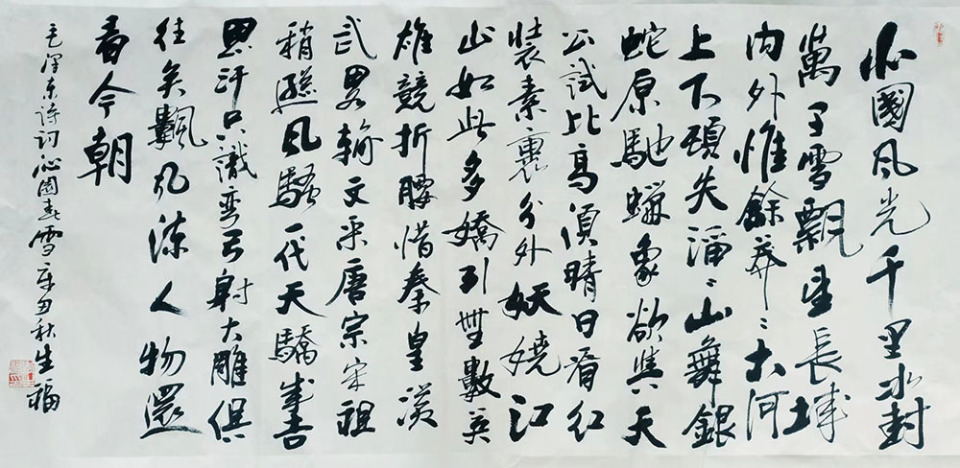 北國風光千里冰封
萬里雪飄望長城
内外惟餘莽〻大河
上下頓失滔〻山舞銀
蛇原馳蠟象欲與天
公試比高須晴日看紅
裝素裹分外妖嬈江
山如此多嬌引無數英
雄競折腰惜秦皇漢
武略輸文采唐宗宋祖
稍遜風騷一代天驕成吉
思汗只識彎弓射大雕俱
往矣數風流人物還
看今朝
毛澤東詩詞沁園春雪辛丑秋生福